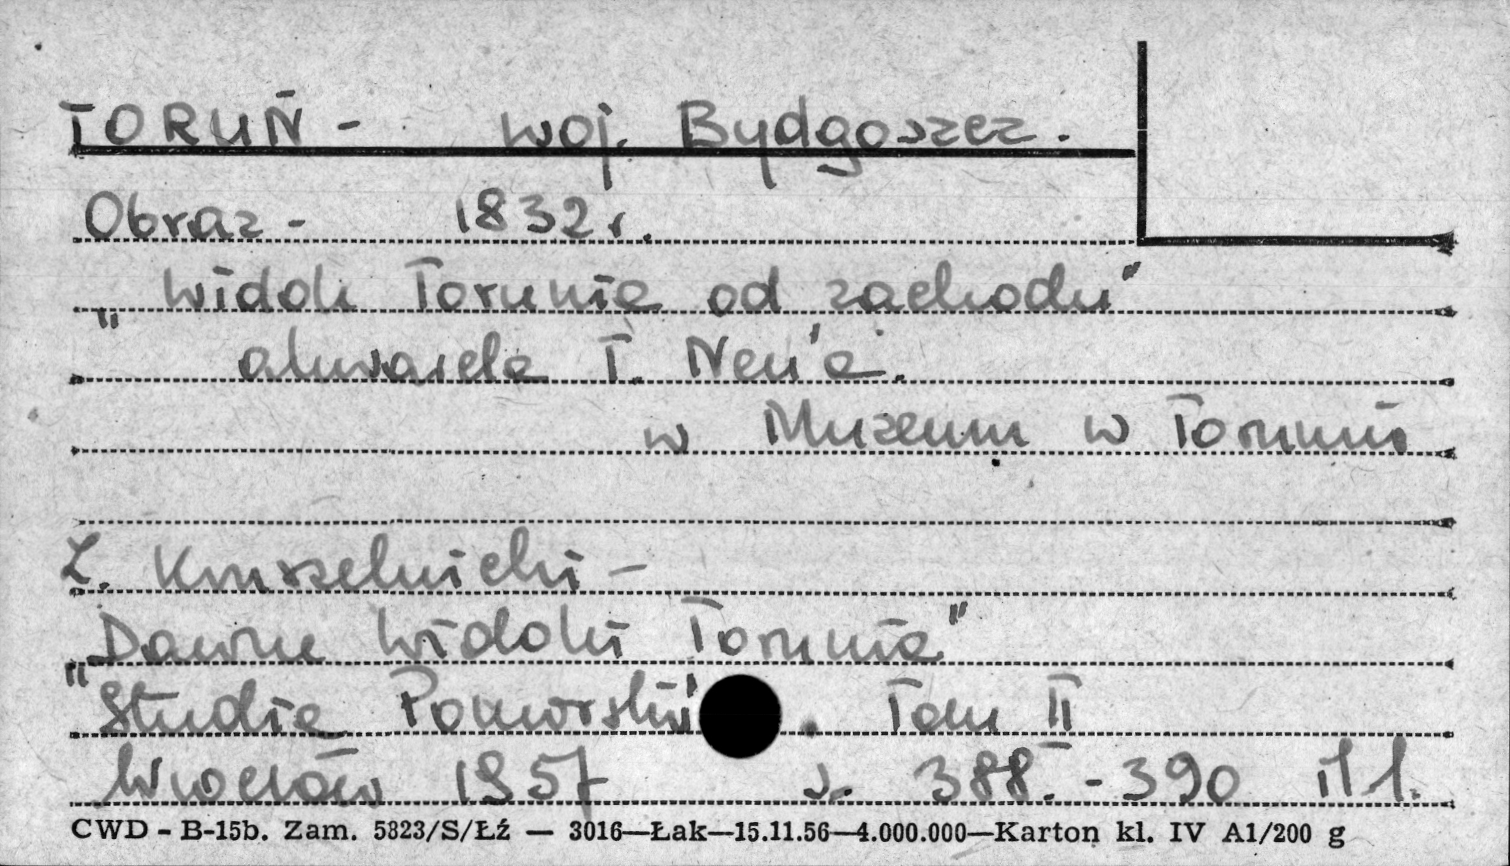 TORUŃ - woj. Bydgoszcz.
Obraz - 1832 r.
"Widok Torunia od zachodu"
akwarela T. Neu'a.
w Muzeum w Toruniu
Z. Kruszelnicki -
"Dawne widoki Torunia"
"Studia Pomorskie" Tom II
Wrocław 1957 s. 388. - 390 il 1.
CWD - B-15b. Zam. 5823/S/Łź — 3016—Łak—15.11.56—4.000.000—Karton kl. IV A1/200 g